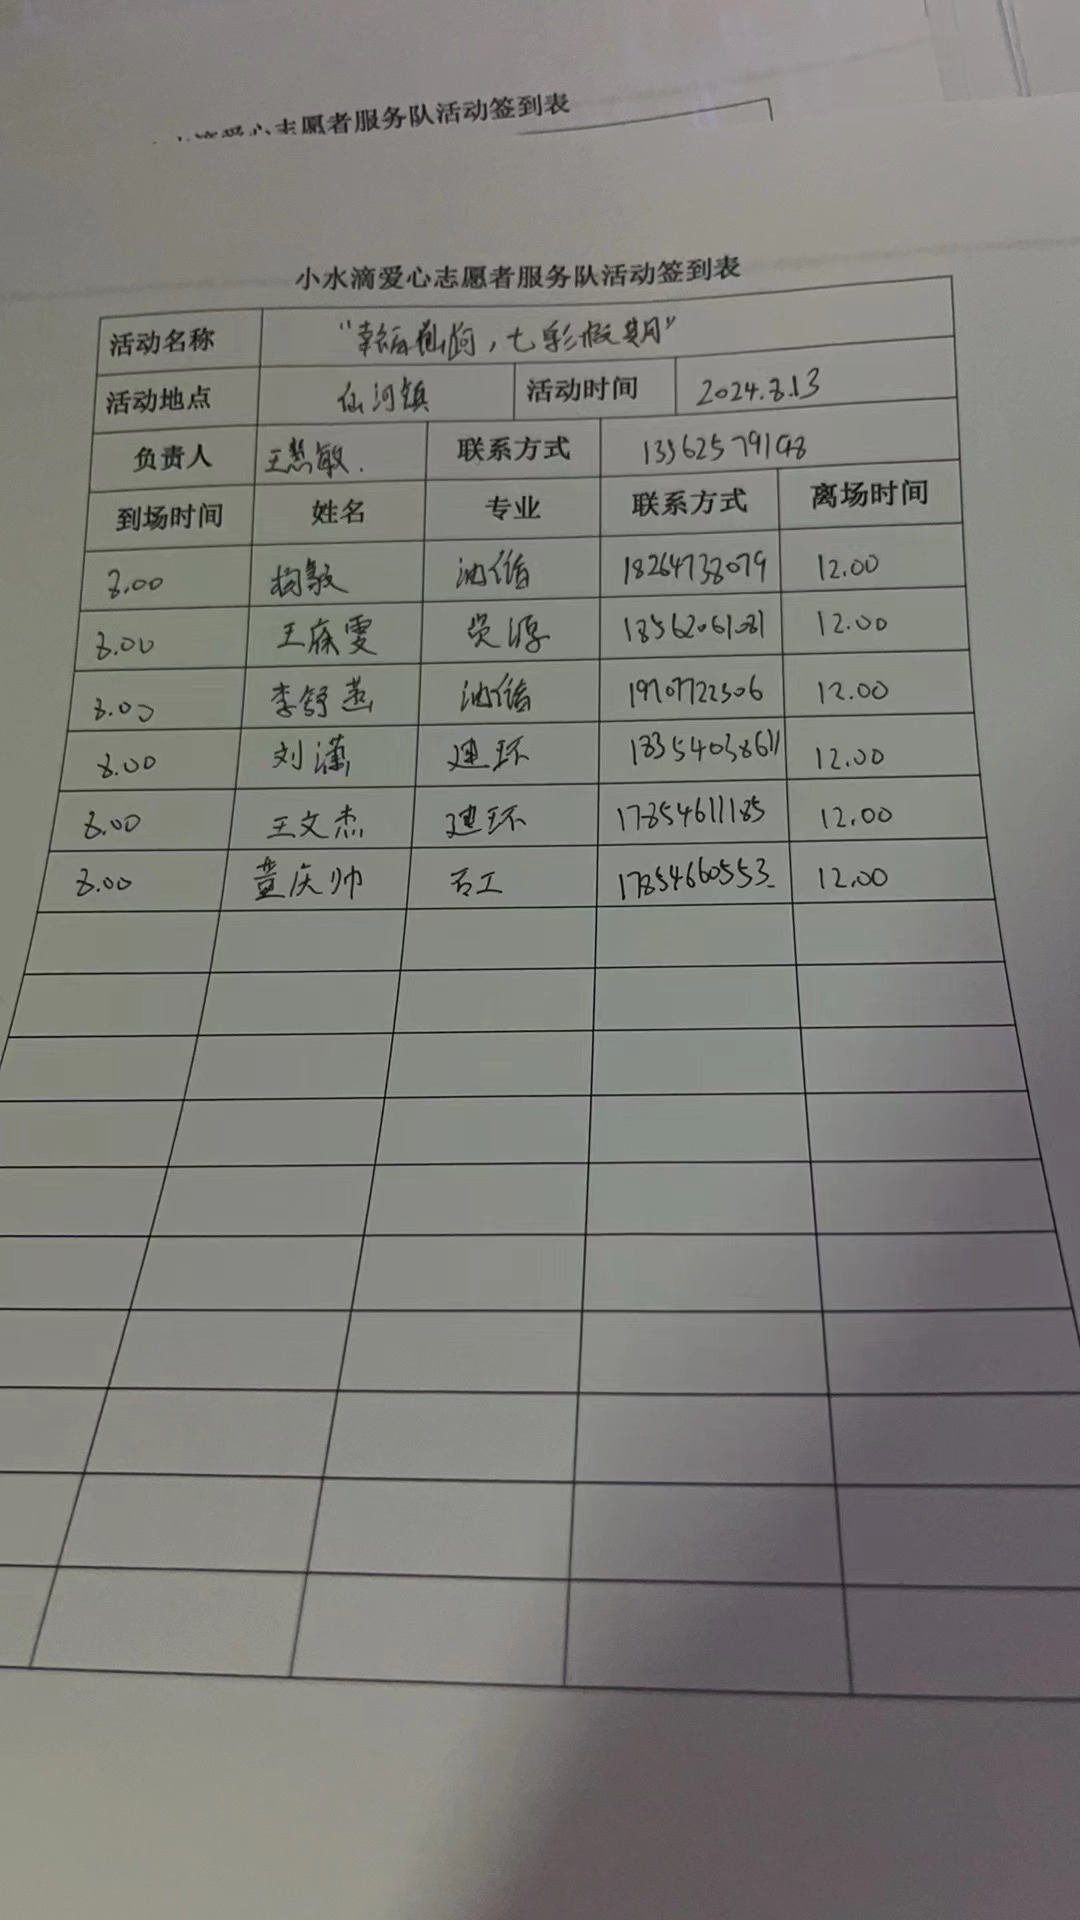 爱心志愿者服务队活动签到表
小水滴爱心志愿者服务队活动签到表
活动名称 "幸福仙河，七彩假期"
活动地点 仙河镇 活动时间 2024.8.13
负责人 王慧敏. 联系方式 13562579198
到场时间 姓名 专业 联系方式 离场时间
8.00 杨敏 油储 18264738079 12.00
8.00 王雯 资源 18562061081 12.00
8.00 李舒燕 油储 12.00
8.00 刘潇 建环 18354038611 12.00
8.00 王文杰 建环 17854611185 12.00
8.00 董庆帅 石工 17854660553 12.00